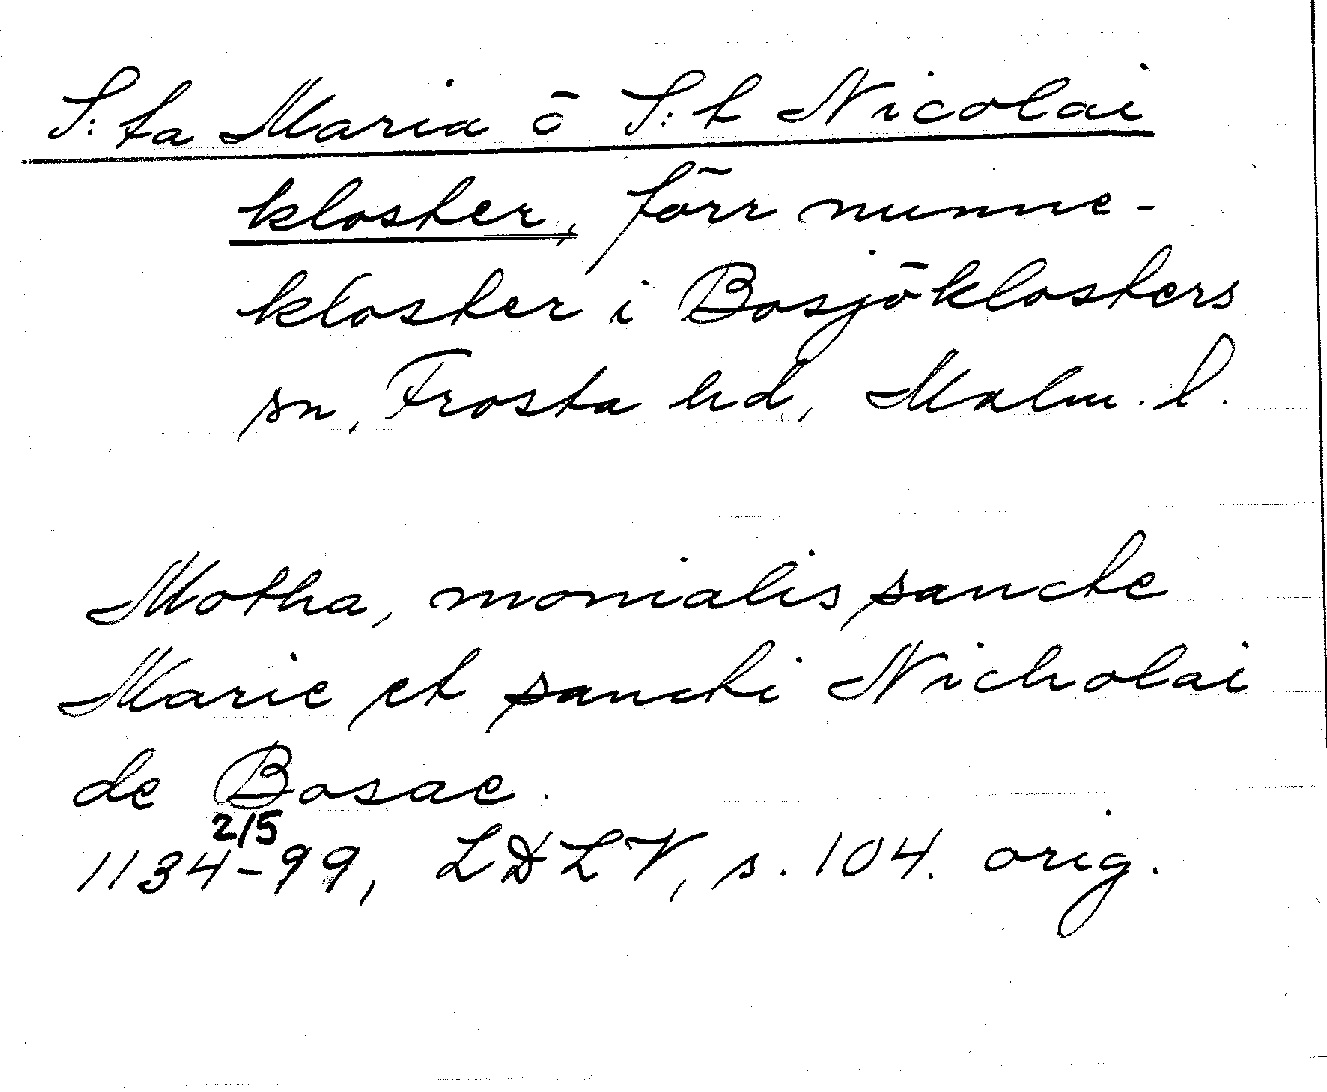 S:ta Maria o S:t Nicolai
kloster, förr nunne-
kloster i Bosjöklosters
sn, Frosta hd, Malm. l.
Motha, monialis sancte
Marie et sancti Nicholai
de Bosae
2/5
1134-99, LDLV, s. 104. orig.